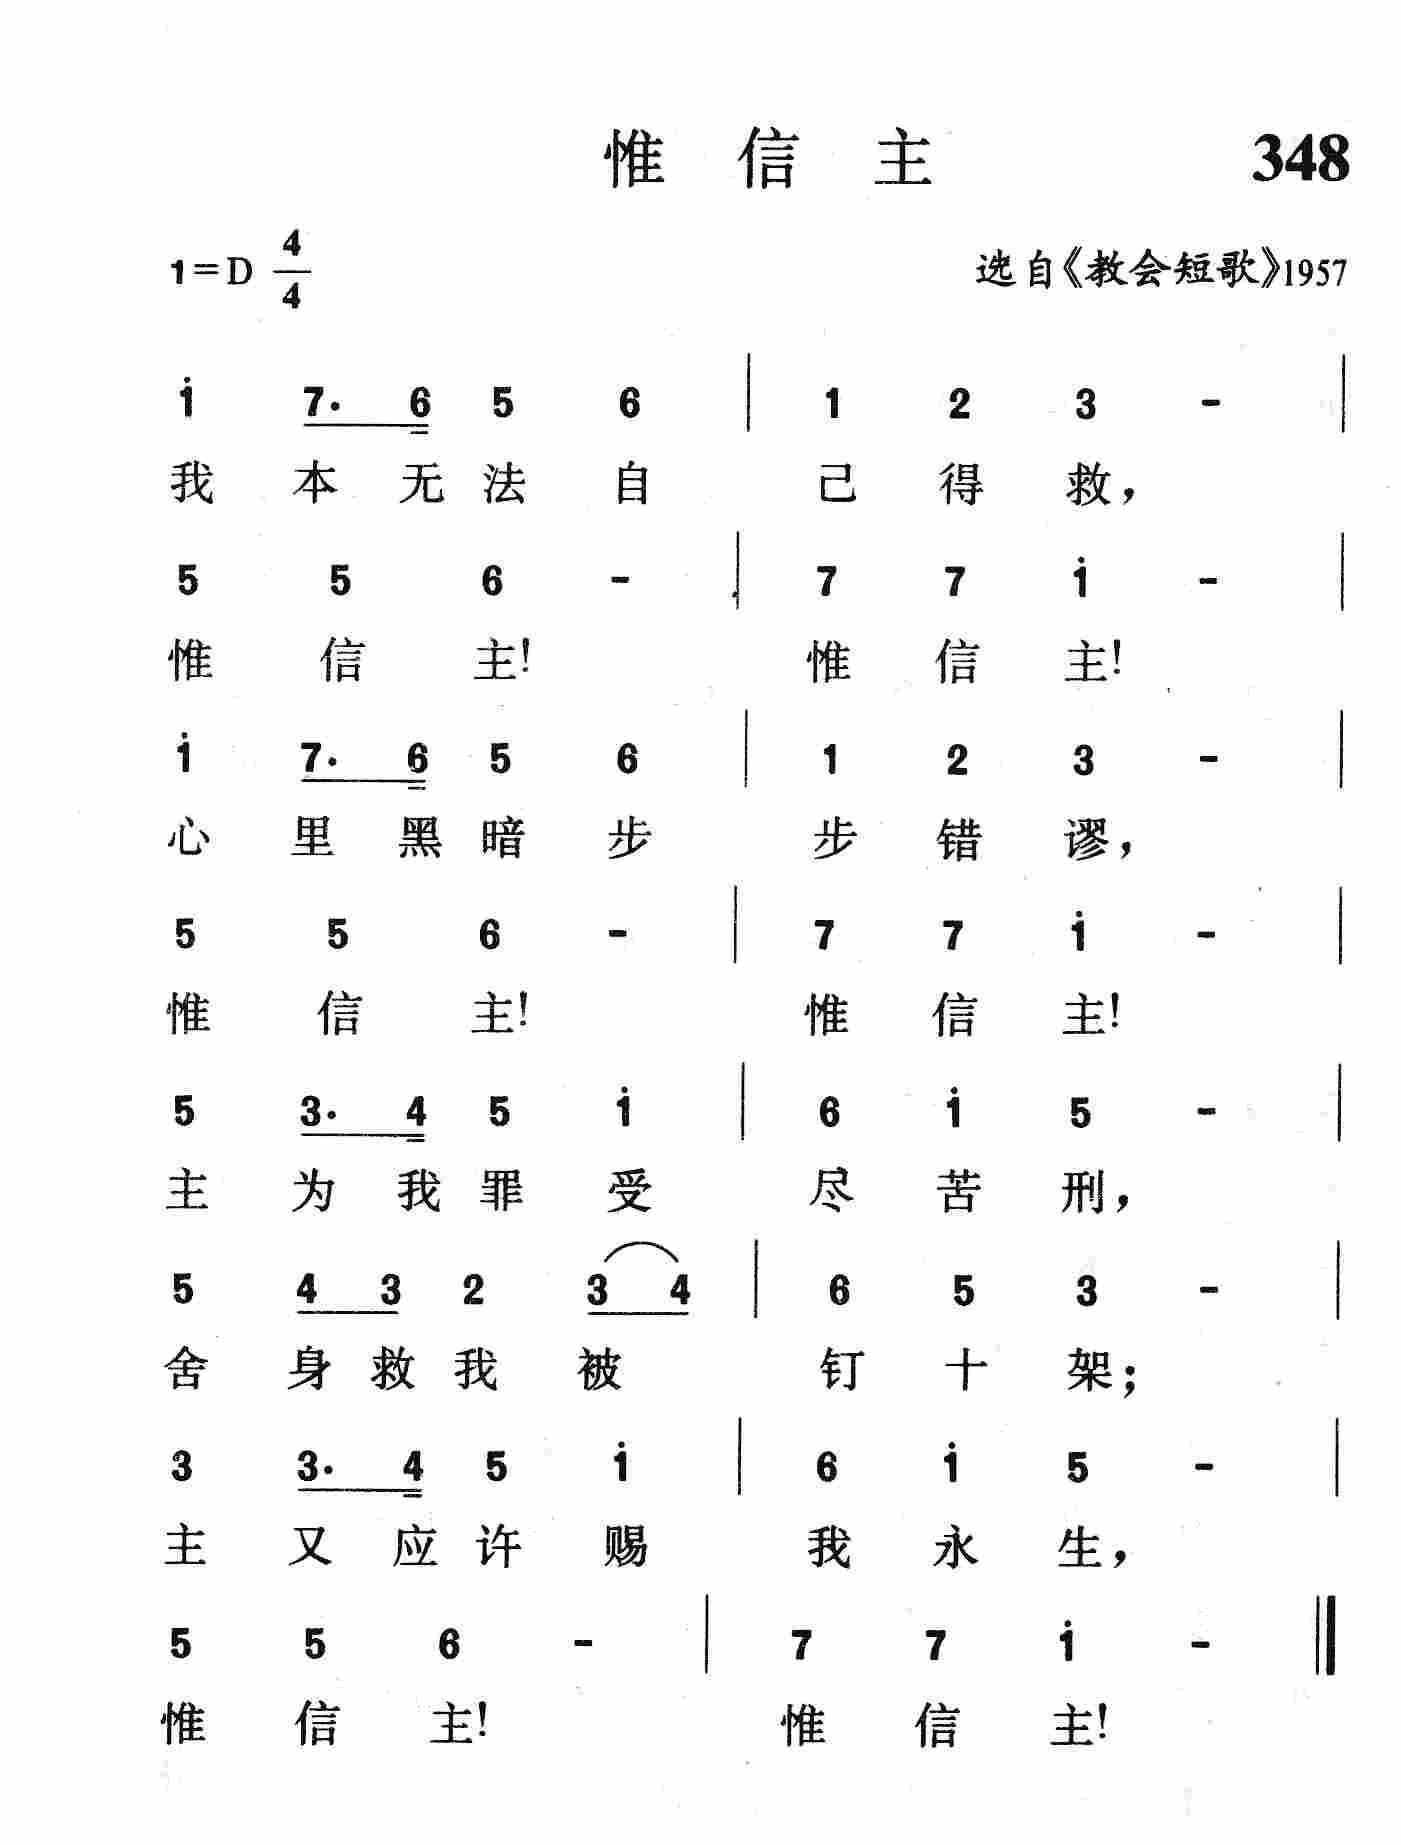 惟信主 348
1=D 4/4 选自《教会短歌》1957
i 7. 6 5 6 | 1 2 3 - |
我本无法自 己得救，
5 5 6 - | 7 7 i -  |
惟信主！ 惟信主！
i 7. 6 5 6 | 1 2 3 - |
心里黑暗步 步错谬，
5 5 6 - | 7 7 i - |
惟信主！ 惟信主！
5 3. 4 5 i | 6 i 5 - |
主为我罪受 尽苦刑，
5 4 3 2 3 4 | 6 5 3 - |
舍身救我被 钉十架；
3 3. 4 5 i | 6 i 5 - |
主又应许赐 我永生，
5 5 6 - | 7 7 i - ‖
惟信主！ 惟信主！